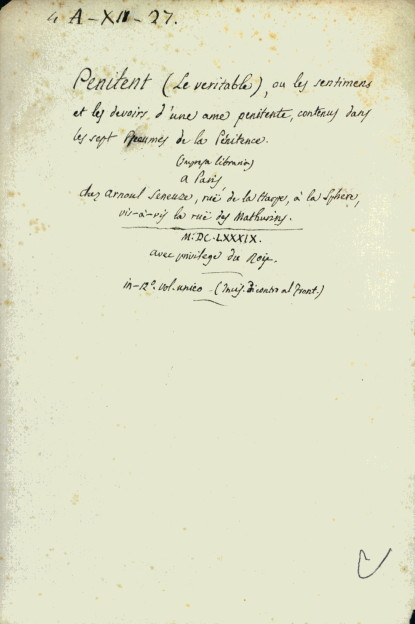 4 A-XII-27.
Penitent (Le veritable), ou les sentimens
et les devoirs d'une ame penitente, contenus dans
les sept Pseaumes de la Pénitence.
(impresa libraria)
a Paris
chez Arnoul Seneuze, ruë de la Harpe, à la Sphere,
vis-à-vis la ruë des Mathurins.
M.DC.LXXXIX.
avec privilege du Roy.
in-12°. vol. unico - (Incis. di contro al Front.)